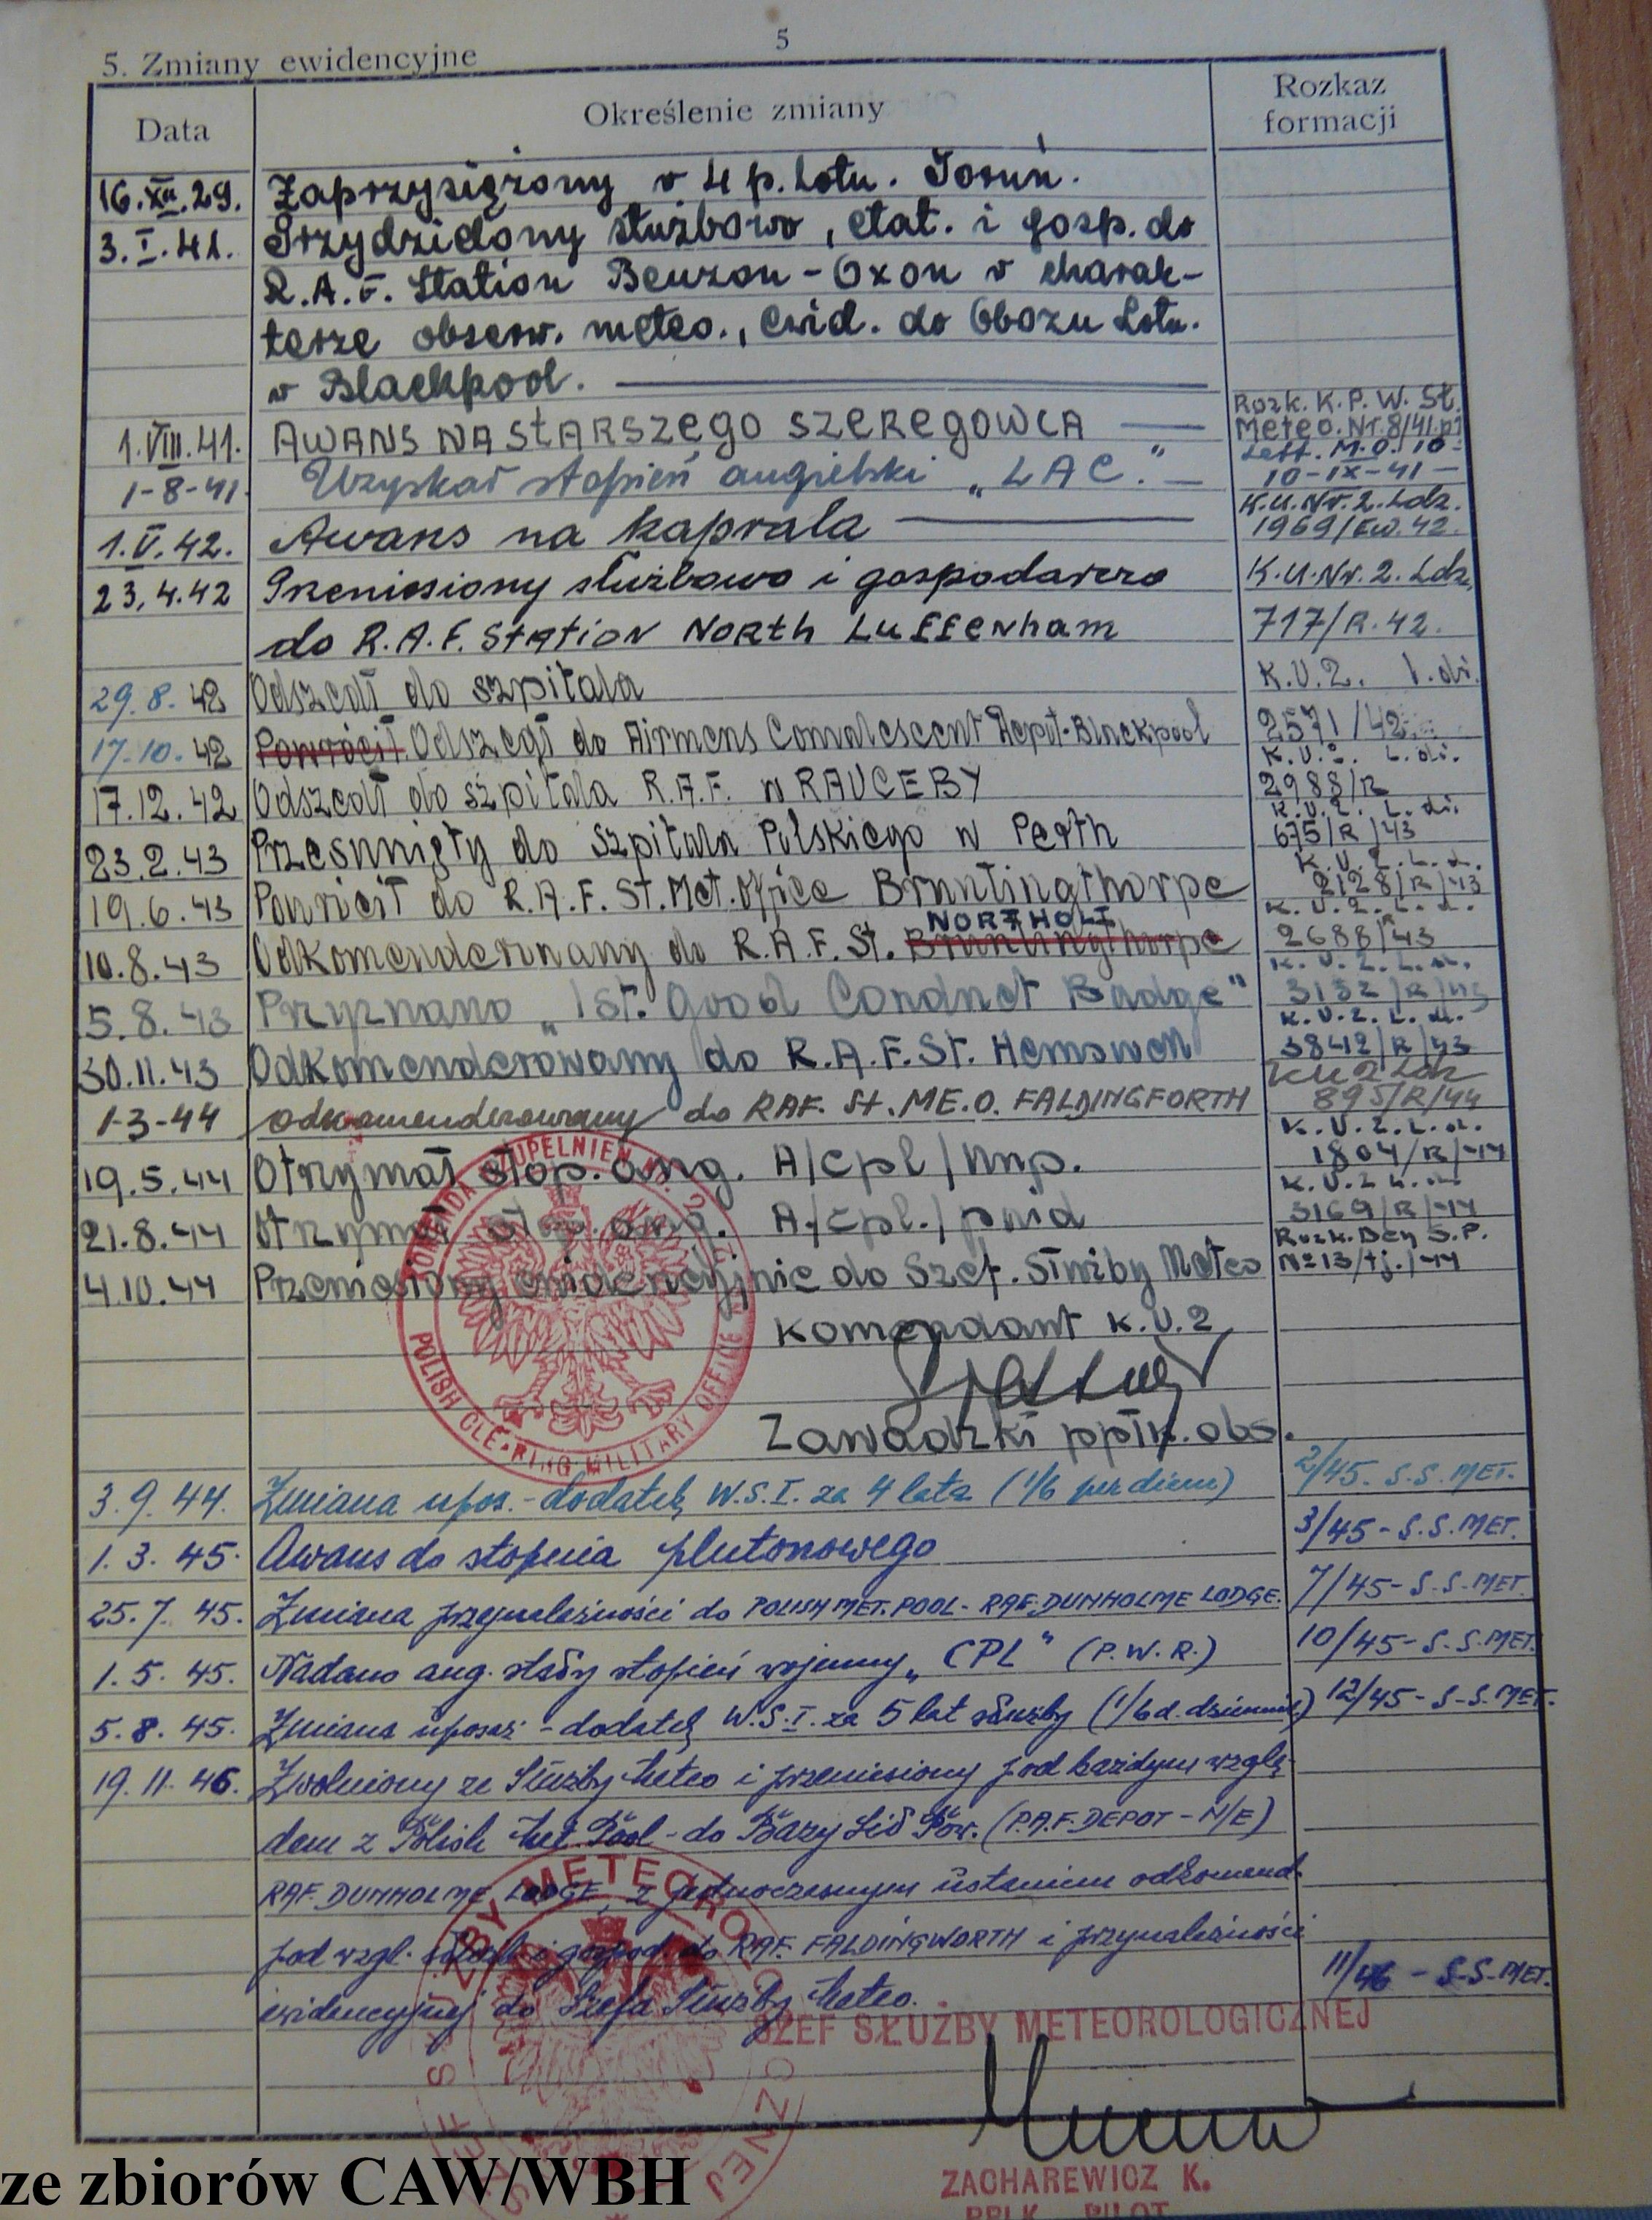 5
5. Zmiany ewidencyjne
Data Określenie zmiany Rozkaz formacji
16.XII.29. Zaprzysiężony v 4 p. Lotn. Toruń.
3.I.41. Przydzielony służbowo, etat. i gosp. do
R.A.F. Station Benzon-Oxon v charak-
terze obserw. meteo., Ewid. do Obozu Lotn.
v Blackpool.
1.VIII.41. AWANS NA STARSZEGO SZEREGOWCA Rozk. K.P.W. St. Meteo. Nr. 8/41
1-8-41. Uzyskał stopień angielski „LAC." Lett. M.O. 10 10-IX-41
1.V.42. Awans na kaprala K.U.Nr.2.Ldz. 1969/Ew.42.
23.4.42 Przeniesiony służbowo i gospodarczo K.U.Nr.2.Ldz.
do R.A.F. Station North Luffenham 717/R.42.
29.8.42 Odszedł do szpitala K.U.2. l.dz. 2571/42
17.10.42 Powrócił Odszedł do Airmens Convalescent Depot-Blackpool K.U.2. L.dz. 2988/R
17.12.42 Odszedł do szpitala R.A.F. w RAUCEBY K.U.2. L.dz. 675/R/43
23.2.43 Przesunięty do Szpitala Polskiego w Perth K.U.2.L.d.
19.6.43 Powrócił do R.A.F. St. Met. Office Bruntingthorpe 2128/R/43
10.8.43 Odkomenderowany do R.A.F. St. Bruntingthorpe NORTHOLT K.U.2.L.d. 2688/R/43
5.8.43 Przyznano „1st. Good Conduct Badge" K.U.2.L.d. 3132/R/43
30.11.43 Odkomenderowany do R.A.F. St. Hemswell K.U.2.L.d. 3842/R/43
1-3-44 odkomenderowany do RAF. St. ME.O. FALDINGFORTH KU2 Ldz 895/R/44
19.5.44 Otrzymał stop. ang. A/cpl/unp. K.U.2.L.d. 1804/R/44
21.8.44 Otrzymał stop. ang. A/cpl./paid K.U.2 L. 3169/R/44
4.10.44 Przeniesiony ewidencyjnie do Szef. Służby Meteo Rozk. Dcy S.P. No 13/tj./44
Komendant K.U.2
Zawadzki ppłk. obs.
KOMENDA UZUPEŁNIEŃ Nr. 2
POLISH CLEARING MILITARY OFFICE
3.9.44. Zmiana upos. - dodatek W.S.I. za 4 lata (1/6 per diem) 2/45. S.S.MET.
1.3.45. Awans do stopnia plutonowego 3/45-S.S.MET.
25.7.45. Zmiana przynależności do POLISH MET. POOL- RAF. DUNHOLME LODGE. 7/45-S.S.MET.
1.5.45. Nadano ang. stały stopień wojenny „CPL" (P.W.R.) 10/45-S.S.MET.
5.8.45. Zmiana uposaż - dodatek W.S.I. za 5 lat służby (1/6 d. dziennie) 12/45-S.S.MET.
19.11.46. Zwolniony ze Służby Meteo i przeniesiony pod każdym wzglę-
dem z Polish Met Pool - do Bazy Lid Pow. (P.A.F. DEPOT - N/E)
RAF. DUNHOLME LODGE, z jednoczesnym ustaniem odkomend.
pod wzgl. służb. i gospod. do RAF. FALDINGWORTH i przynależności
ewidencyjnej do Szefa Służby Meteo. 11/46 - S.S.MET.
SZEF SŁUŻBY METEOROLOGICZNEJ
SZEF SŁUŻBY METEOROLOGICZNEJ
ZACHAREWICZ K.
PPŁK. PILOT
ze zbiorów CAW/WBH